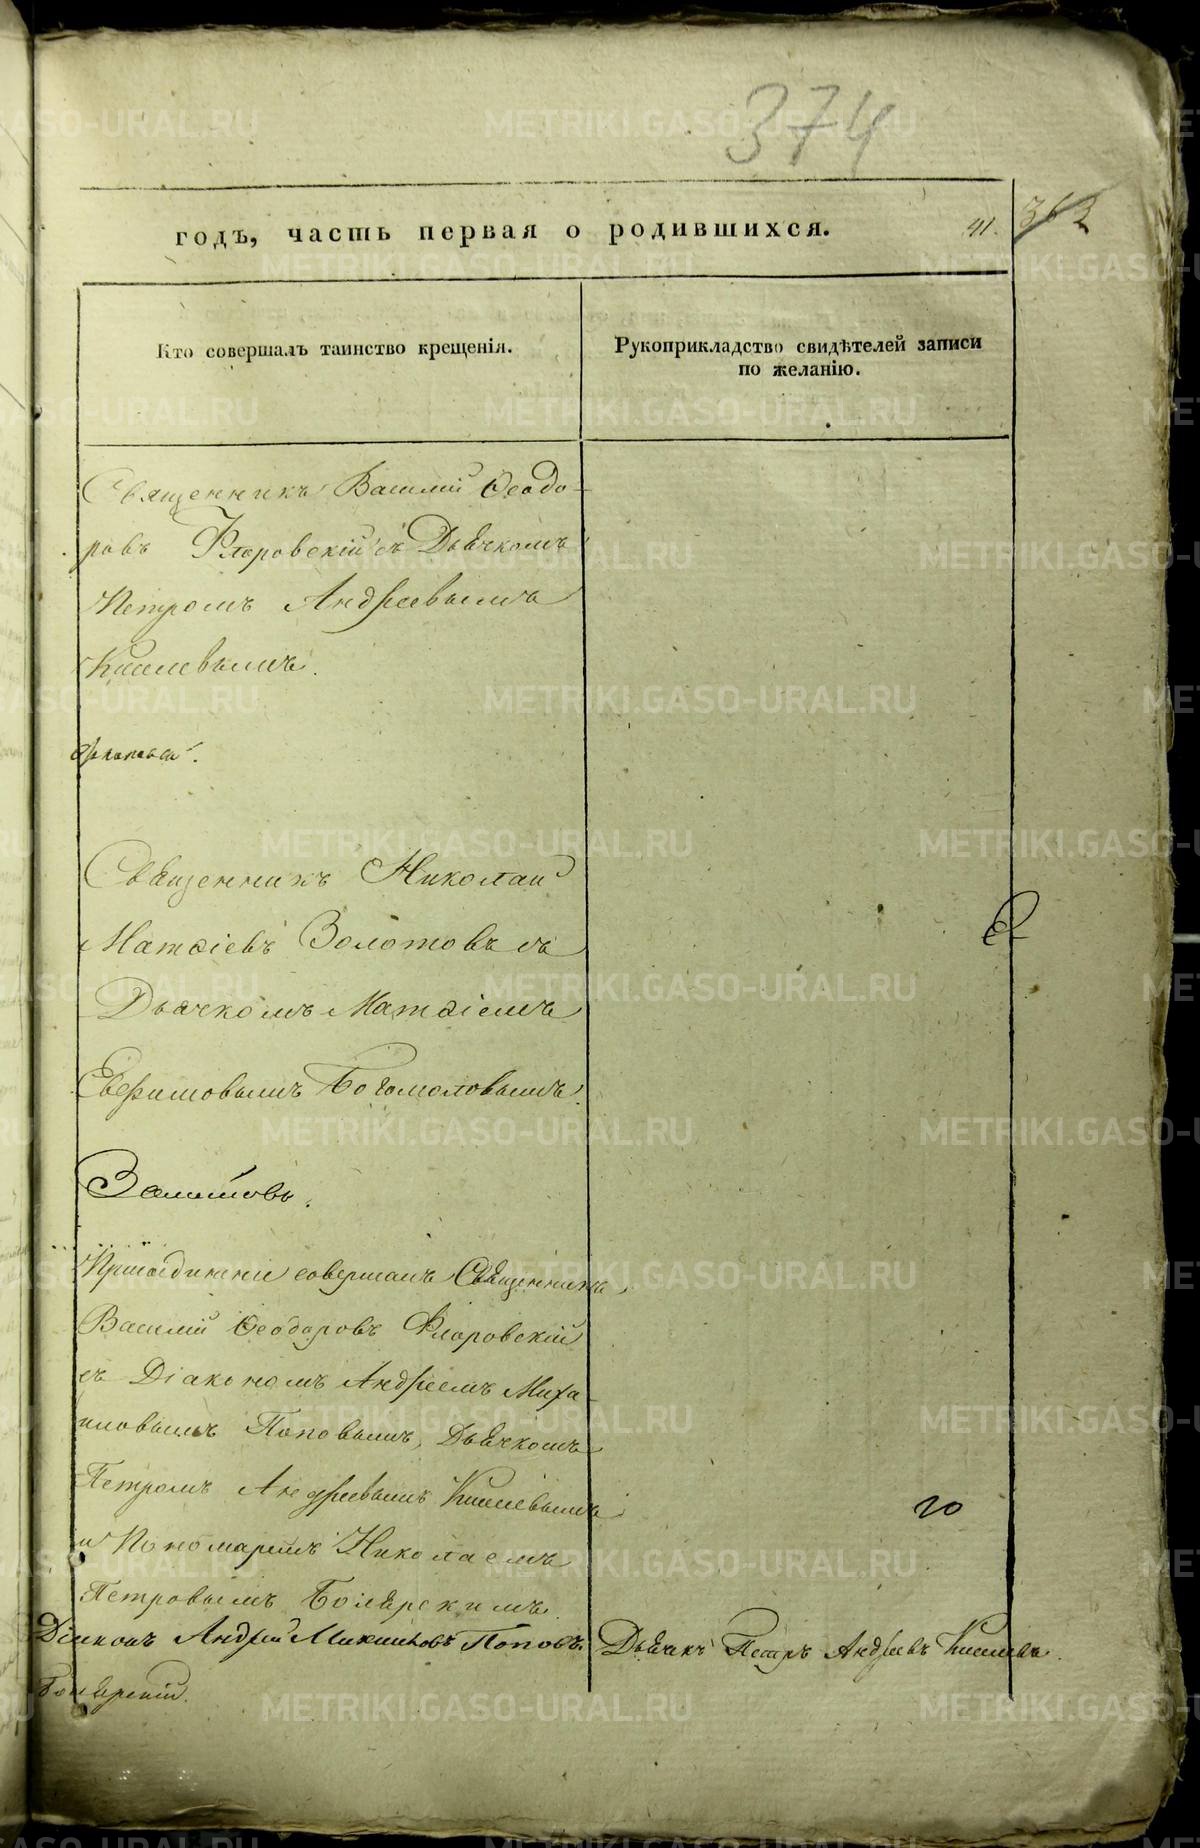 374
годъ, часть первая о родившихся.
41.
362
Кто совершалъ таинство крещенія.
Рукоприкладство свидѣтелей записи
по желанію.
Священникъ Василій Ѳеодо-
ровъ Фларовскій съ Дьячкомъ
Петромъ Андреевымъ
Киселевымъ.
Священникъ Николай
Матѳіевъ Золотовъ съ
Дьячкомъ Матѳіемъ
Евфимовымъ Богомоловымъ.
Золотовъ.
Присоединеніе совершалъ Священникъ
Василій Ѳеодоровъ Фларовскій
съ Діакономъ Андреемъ Миха-
иловымъ Поповымъ, Дьячкомъ
Петромъ Андреевымъ Киселевымъ
и Пономаремъ Николаемъ
Петровымъ Боярскимъ.
Діаконъ Андрей Михаиловъ Поповъ. Дьячекъ Петръ Андреевъ Киселевъ.
Боярскій.
METRIKI.GASO-URAL.RU